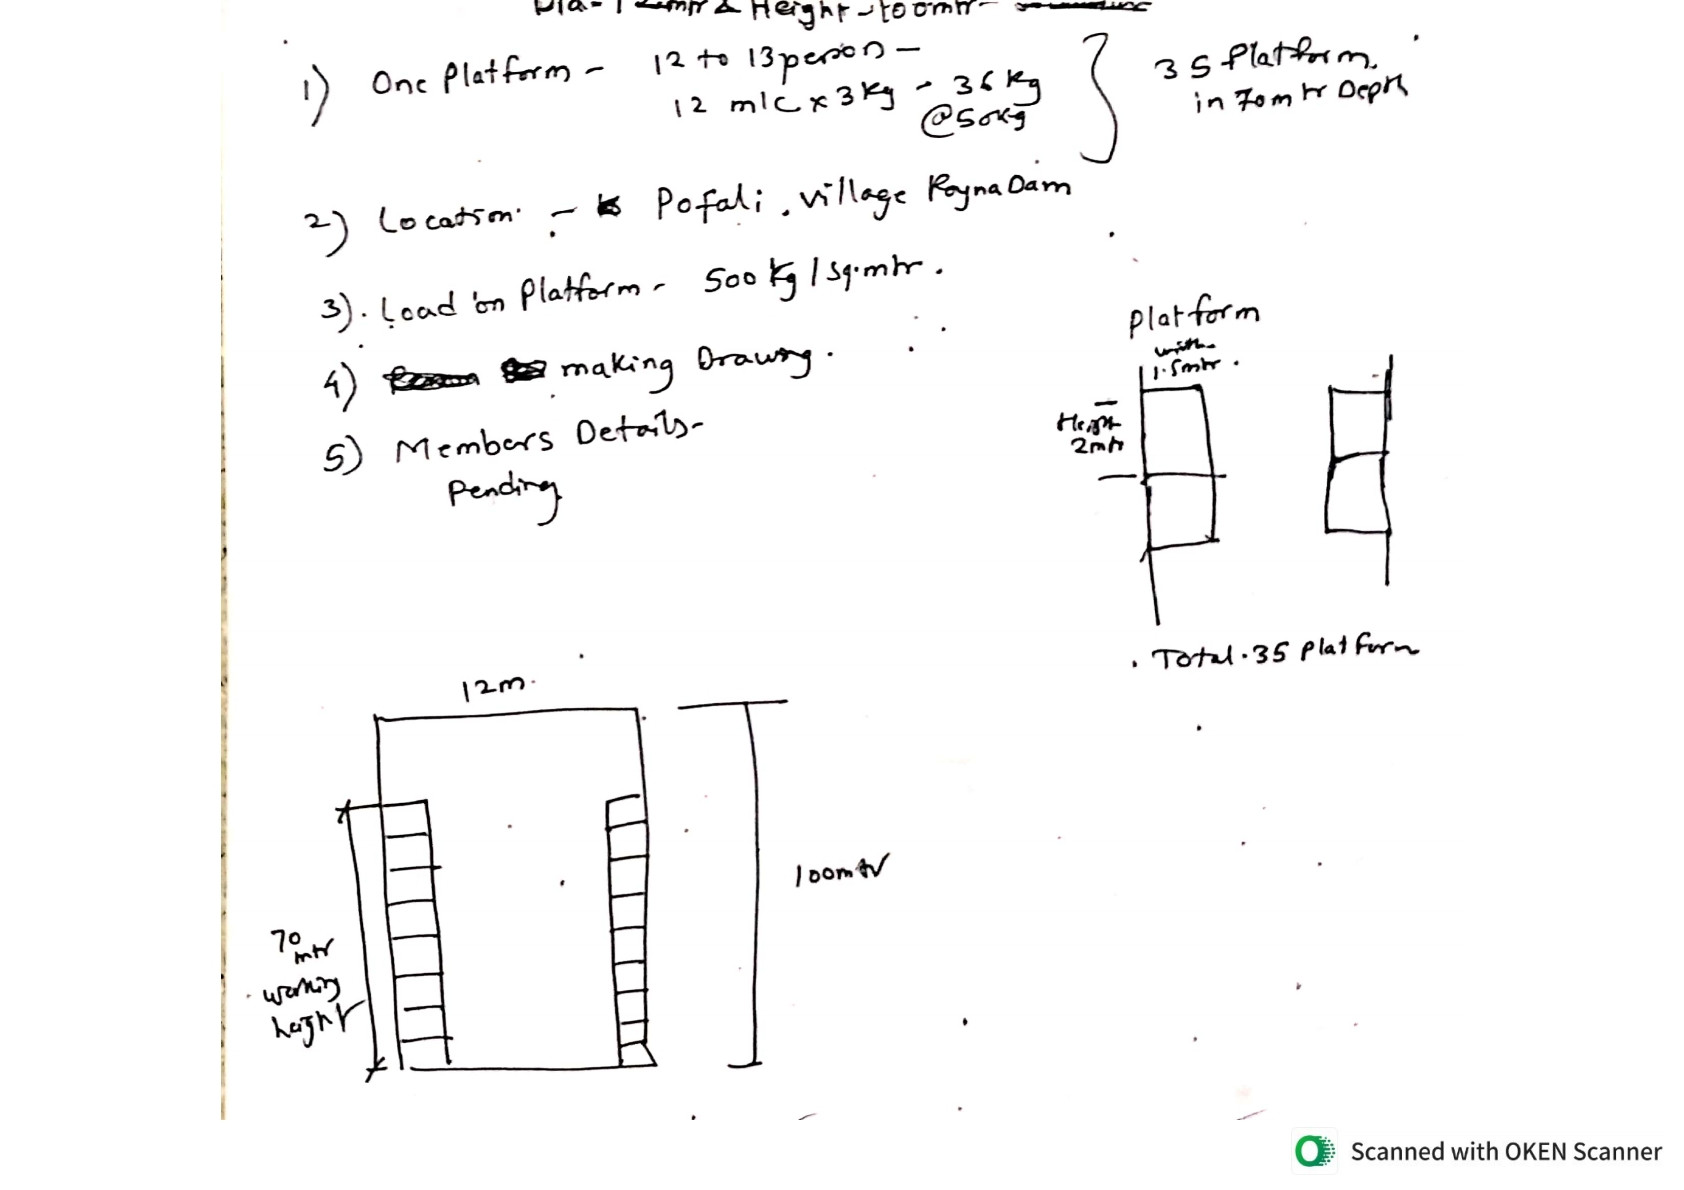 Dia- 12mtr & Height - 100mtr-
1) One Platform - 12 to 13 person -
12 m/c x 3 kg - 36 kg
@50kg
35 Platform.
in 70mtr Depth
2) Location :- Pofali, village Koyna Dam
3). Load on Platform - 500 kg / sq.mtr.
4) making Drawing.
5) Members Details-
Pending
Platform
with
1.5mtr.
Height
2mtr
Total. 35 Platform
12m.
100mtr
70
mtr
working
height
Scanned with OKEN Scanner